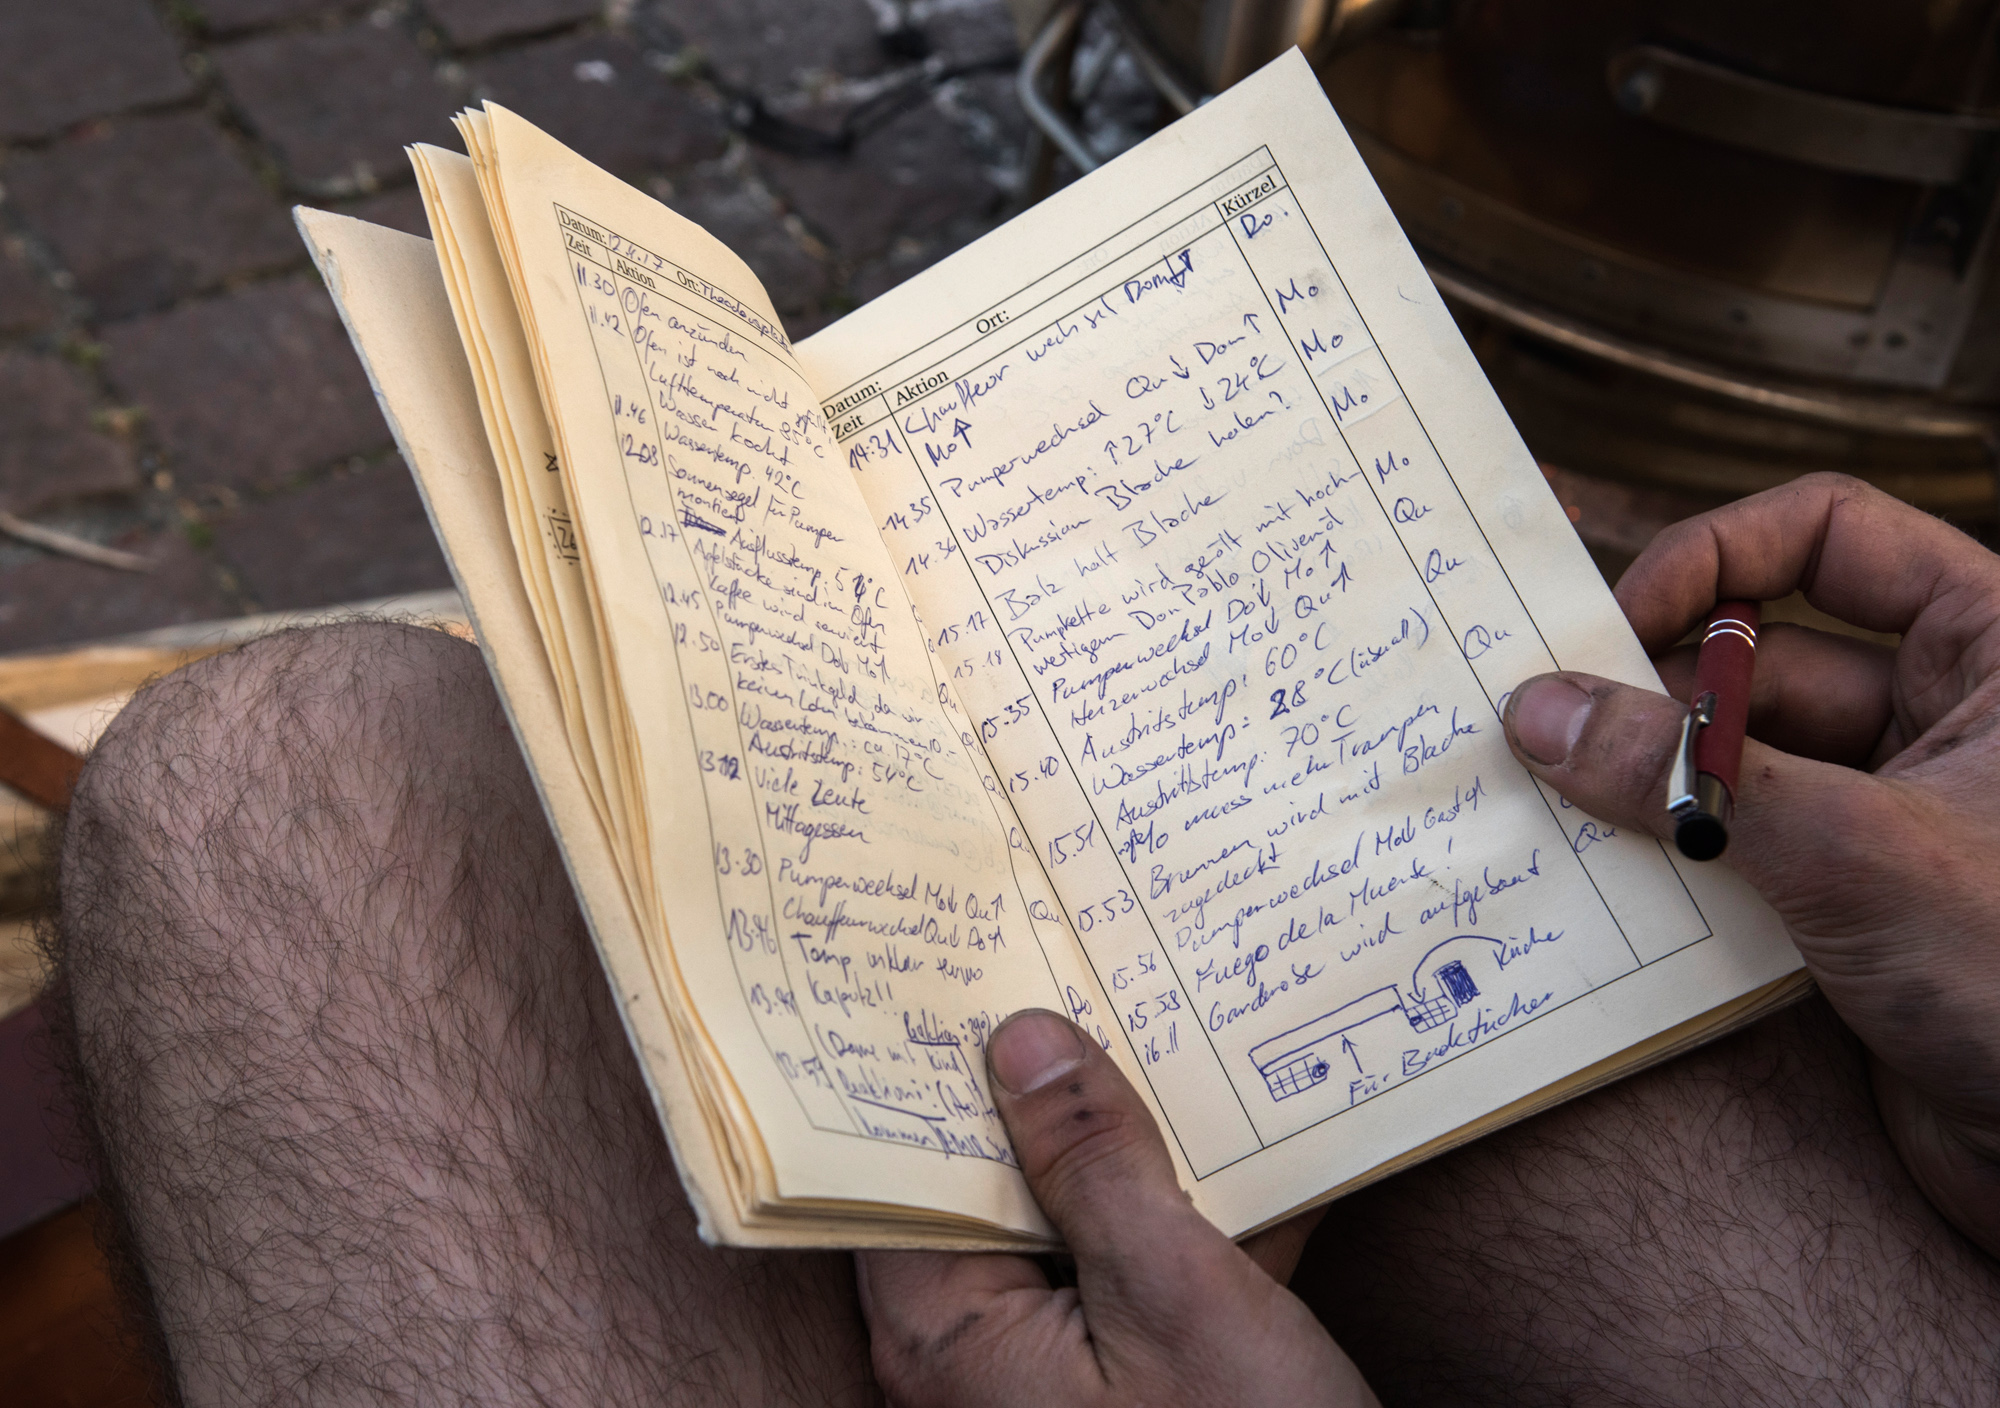 Datum: 12.4.17 Ort:
Zeit Aktion
11.30 Ofen anzünden
11.42 Ofen ist noch nicht
Lufttemperatur 85°C
Wasser kocht
11.46 Wassertemp. 42°C
12.08 Sonnensegel für Pumper
montiert
12.17 Ausflusstemp.: 51°C
Apfelstücke sind im Ofen
Kaffe wird serviert
12.45 Pumperwechsel Do↓ Mo↑
12.50 Erstes Trinkgeld, da wir
keinen Lohn bekommen 10.-
13.00 Wassertemp.: ca 17°C
Austrittstemp: 54°C
13.12 Viele Leute
Mittagessen
13.30 Pumperwechsel Mo↓ Qu↑
Chauffeurwechsel Qu↓ Do↑
13.46 Temp
Kaputz!!
Reaktion: 
(Dame mit Kind)
13.59 Reaktion:
kommen
Datum: Ort: Kürzel
Zeit Aktion
14:31 Chauffeur wechsel Dom↓ Do.
Mo↑
14.35 Pumperwechsel Qu↓ Dom↑ Mo
14.36 Wassertemp: ↑27°C ↓24°C Mo
Diskussion Blache holen? Mo
15.17 Balz holt Blache Mo
15.18 Pumpkette wird geölt mit hoch- Qu
wertigem Don Pablo Olivenöl
15.35 Pumperwechsel Do↓ Mo↑ Qu
Heizerwechsel Mo↓ Qu↑
15.40 Austrittstemp: 60°C Qu
Wassertemp: 28°C (überall)
15.51 Austrittstemp: 70°C
Mo muss mehr Trampen
15.53 Brunnen wird mit Blache
zugedeckt
15.56 Pumperwechsel Mo↓ Gast↑
15.58 Fuego de la Muerte! Qu
16.11 Garderobe wird aufgebaut
Küche
Für Badetücher